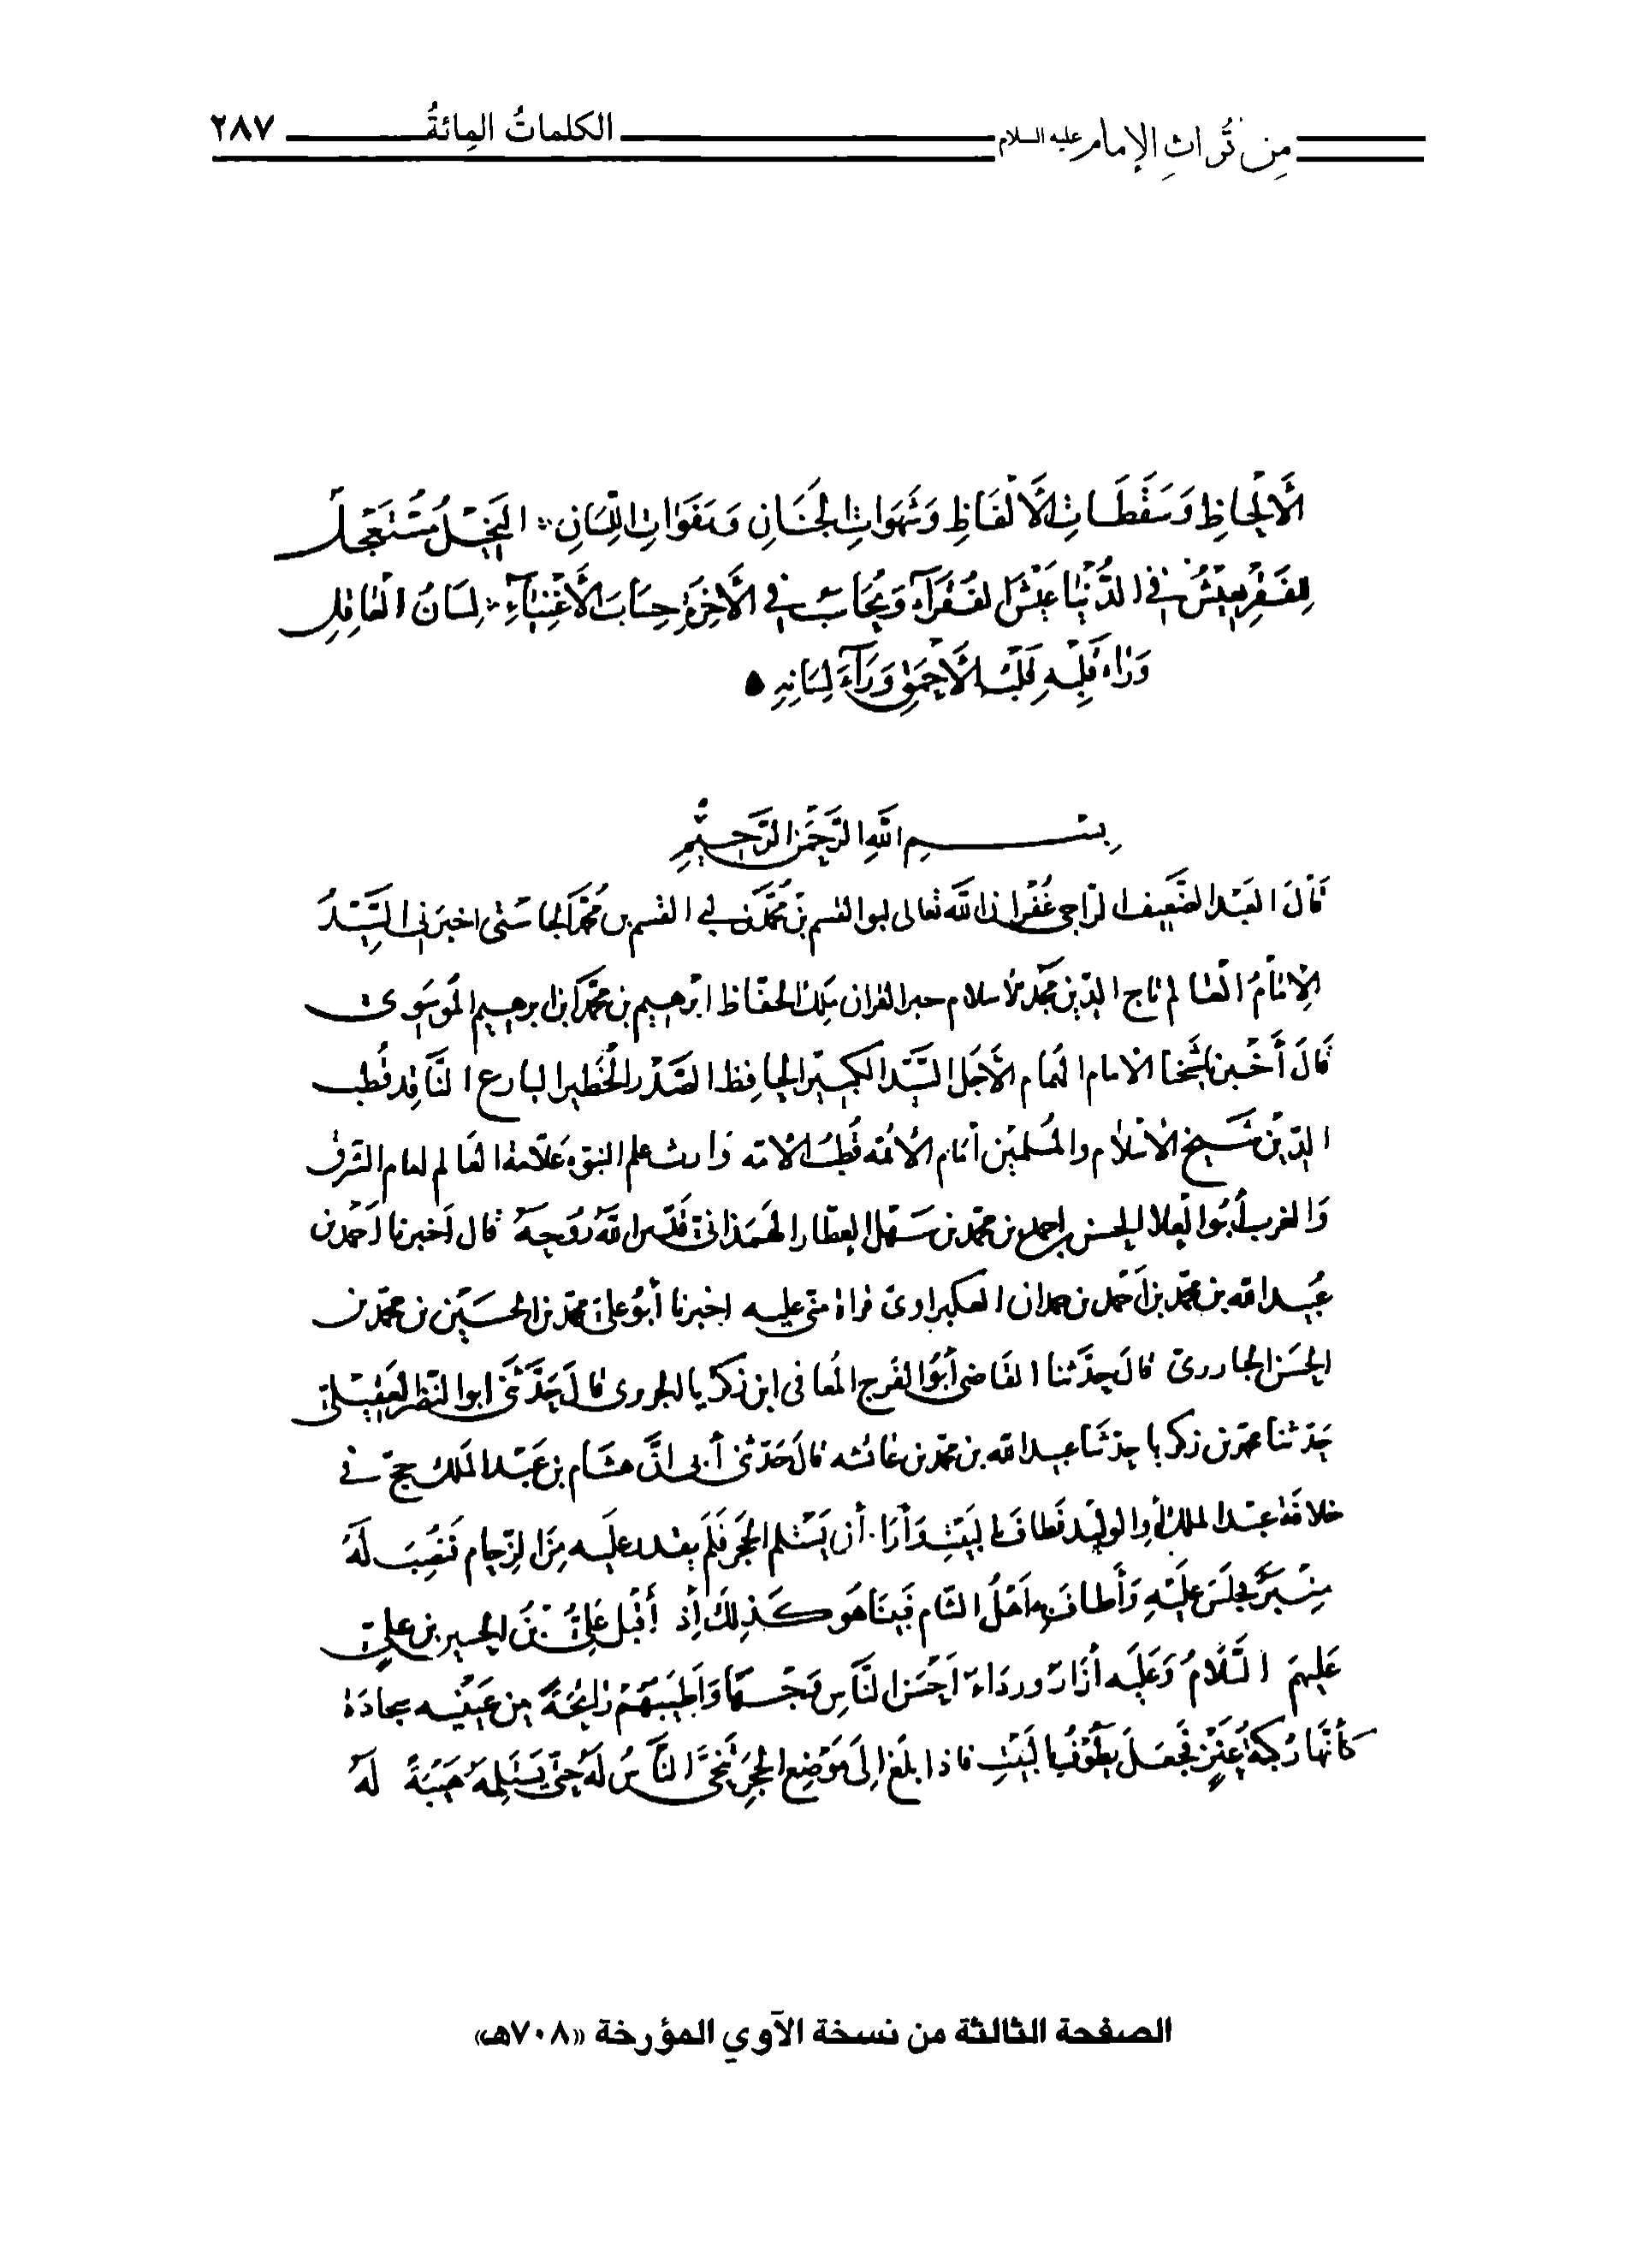 مِن تُراثِ الإمام عليه السلام الكلماتُ المِائةُ ٢٨٧
الأَلْحَاظِ وَسَقَطَاتِ الأَلْفَاظِ وَشَهَوَاتِ الْجَنَانِ وَهَفَوَاتِ اللِّسَانِ ∴ البَخِيْلُ مُسْتَعْجِلٌ
لِفَقْرِهِ يَعِيْشُ فِي الدُّنْيَا عَيْشَ الفُقَرَآءِ وَيُحَاسَبُ فِي الأَخِرَةِ حِسَابَ الأَغْنِيَآءِ ∴ لِسَانُ الْعَاقِلِ
وَرَاءَ قَلْبِهِ قَلْبُ الأَحْمَقِ وَرَآءَ لِسَانِهِ
بِسْمِ اللهِ الرَّحْمٰنِ الرَّحِيْمِ
قَالَ العَبْدُ الضَّعِيفُ الرَّاجِي غُفْرَانَ اللَّهِ تعالى ابو القسم بنُ مُحَمَّد بن ابي القسم بن مُحَمَّد اخبرَنِي السَّيِّدُ
الإِمَامُ العَالم تاج الدِّين مَجْد الأسلام ملك الحفّاظ ابرهيم بن محمَّد بن ابرهيم المُوسَوِي
قَالَ أَخْبَرَنَا شَيْخُنَا الامام الهُمام الأَجَلّ السَّيِّد الكبيْر الحافِظ الصَّدْرُ الخَطير البارع النَّاقِد قُطب
الدّيْن شَيخ الأسْلام والمُسلميْن أمَام الأئمّة قُطبُ الأمّة وَارث علم النبوّة علّامة العَالم امام الشرق
وَالغرب أَبُو العلا الحسن بن احمد بن محمّد بن سَهْل العطّار الهَمَذاني قدّس اللهُ رُوْحَهُ قال اَخبرنا اَحْمَد بن
عُبيد الله بن محمّد بن اَحْمَد بن حمدان العكبراوي قراءةً منّي عليه اخبرنا أبُو علي محمّد بن الحسَيْن بن محمّد بن
الحسَن الجازري قالَ حدَّثنا القاضي أَبُو الفرج المُعافى ابن زكريا الجريري قالَ حَدَّثَنِي ابو النّضر العُقيلي
حَدثنا محمّد بن زكريا حدثنا عبيد الله بن محمّد بن عائشه قالَ حَدّثني أبي انَّ هشَام بن عَبْد الملك حجّ في
خلافة عبد الملك أو الوليد فطافَ بالبَيْتِ وَأَرَادَ أن يَسْتلم الحجَر فَلَم يقدر عليه مِنَ الزِّحام فنُصِبَ لَهُ
مِنْبَرٌ فجلسَ عَلَيْهِ وَأطافَ بهِ أهْلُ الشام فَبَيْنَا هُوَ كَذلِكَ إِذْ أَقْبَلَ عَلِيُّ بْنُ الحسين بن علي
عَلَيهِمَ السَّلَامُ وَعَلَيه أزَارٌ وَرداء اَحْسَن النَّاسِ وَجْهًا وَاَطْيَبَهُمْ رَائِحَةً بين عَيْنَيْه سجادَة
كَأَنَّهَا رُكْبَةُ عَنْزٍ فَجَعَلَ يَطُوْفُ بالبَيْتِ فاذا بلغَ اِلَى مَوْضِع الحجَرِ تَنَحَّى النَّاسُ لَهُ حتّى يَسْتَلِمَهُ هَيْبَةً لَهُ
الصفحة الثالثة من نسخة الآوي المؤرخة «٧٠٨هـ»